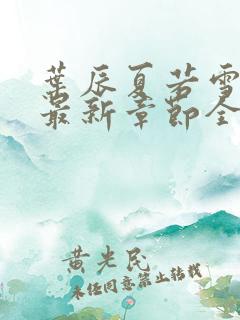 葉辰夏若雪
最新章節全
黄光民
未经同意禁止转载